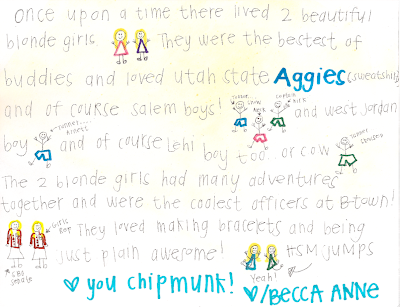 once upon a time there lived 2 beautiful
blonde girls They were the bestest of
buddies and loved utah state Aggies (sweatshirts)
and of course salem boys! and west jordan
boy and of course Lehi boy too or cow
The 2 blonde girls had many adventures
together and were the coolest officers at B-town!
GIRLS REP They loved making bracelets and being
just plain awesome! HSM JUMPS
SBO senate
Yeah!
♡ you chipmunk! ♡/BECCA ANNE